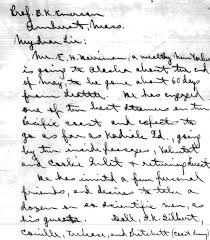 Prof. B.K. Emerson
Amherst, Mass.
My dear Sir:
Mr. E. H. Harriman, a wealthy New Yorker
is going to Alaska about the end
of May, to be gone about 60 days
from Seattle. He has engaged
one of the best steamers on the
Pacific coast and expects to
go as far as Kadiak Id, going
by the inside passages, Yakutat
and Cooks Inlet & returning
He has invited a few personal
friends, and desires to take a
dozen or so scientific men, as
his guests. Dall, Gilbert,
Coville, and Pritchett